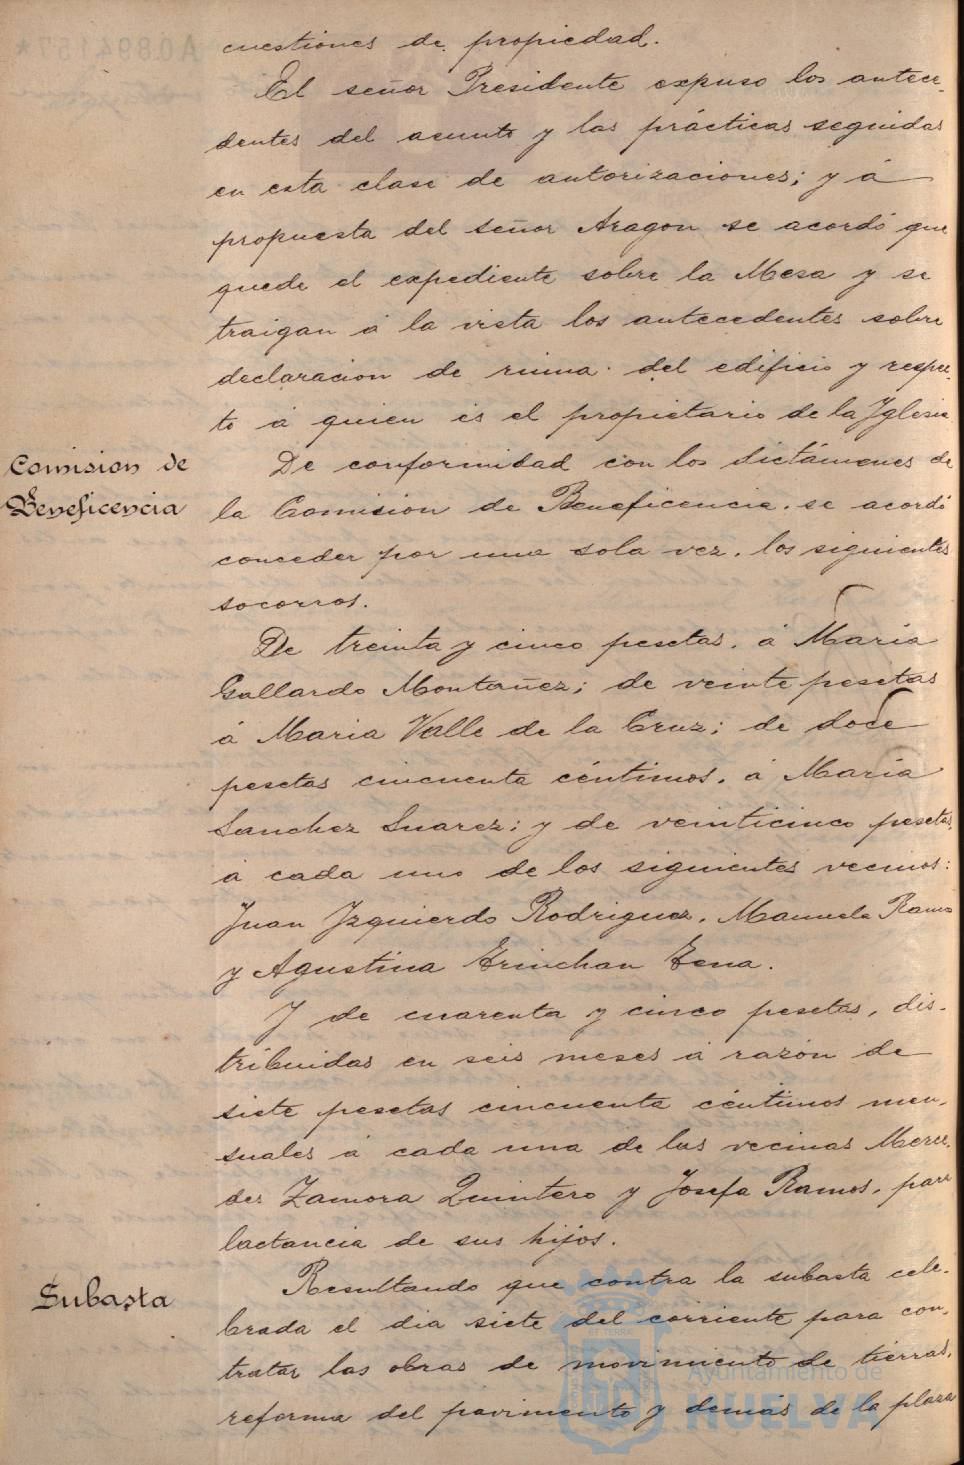 cuestiones de propiedad.
El señor Presidente expuso los antece-
dentes del asunto y las prácticas seguidas
en esta clase de autorizaciones; y á
propuesta del señor Aragon se acordó que
quede el expediente sobre la Mesa y se
traigan á la vista los antecedentes sobre
declaracion de ruina del edificio y respec-
to á quien es el propietario de la Iglesia
Comision de
Beneficencia
De conformidad con los dictámenes de
la Comision de Beneficencia, se acordó
conceder por una sola vez, los siguientes
socorros.
De treinta y cinco pesetas, á María
Gallardo Montañez; de veinte pesetas
á Maria Valle de la Cruz; de doce
pesetas cincuenta céntimos, á María
Sanchez Suarez; y de veinticinco pesetas,
á cada uno de los siguientes vecinos:
Juan Izquierdo Rodriguez, Manuela Ramos
y Agustina Trinchan Tena.
Y de cuarenta y cinco pesetas, dis-
tribuidas en seis meses á razón de
siete pesetas cincuenta céntimos men-
suales á cada una de las vecinas Merce-
des Zamora Quintero y Josefa Ramos, para
lactancia de sus hijos.
Subasta
Resultando que contra la subasta cele-
brada el dia siete del corriente para con-
tratar las obras de movimiento de tierras,
reforma del pavimento y demás de la plaza
Ayuntamiento de
HUELVA